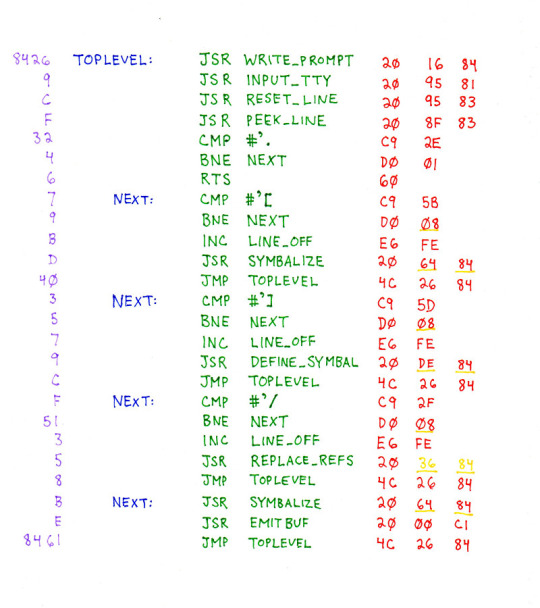 8426 TOPLEVEL: JSR WRITE_PROMPT 2Ø 16 84
9 JSR INPUT_TTY 2Ø 95 81
C JSR RESET_LINE 2Ø 95 83
F JSR PEEK_LINE 2Ø 8F 83
32 CMP #'. C9 2E
4 BNE NEXT DØ Ø1
6 RTS 6Ø
7 NEXT: CMP #'[ C9 5B
9 BNE NEXT DØ Ø8
B INC LINE_OFF E6 FE
D JSR SYMBALIZE 2Ø 64 84
4Ø JMP TOPLEVEL 4C 26 84
3 NEXT: CMP #'] C9 5D
5 BNE NEXT DØ Ø8
7 INC LINE_OFF E6 FE
9 JSR DEFINE_SYMBAL 2Ø DE 84
C JMP TOPLEVEL 4C 26 84
F NEXT: CMP #'/ C9 2F
51 BNE NEXT DØ Ø8
3 INC LINE_OFF E6 FE
5 JSR REPLACE_REFS 2Ø 36 84
8 JMP TOPLEVEL 4C 26 84
B NEXT: JSR SYMBALIZE 2Ø 64 84
E JSR EMITBUF 2Ø ØØ C1
8461 JMP TOPLEVEL 4C 26 84